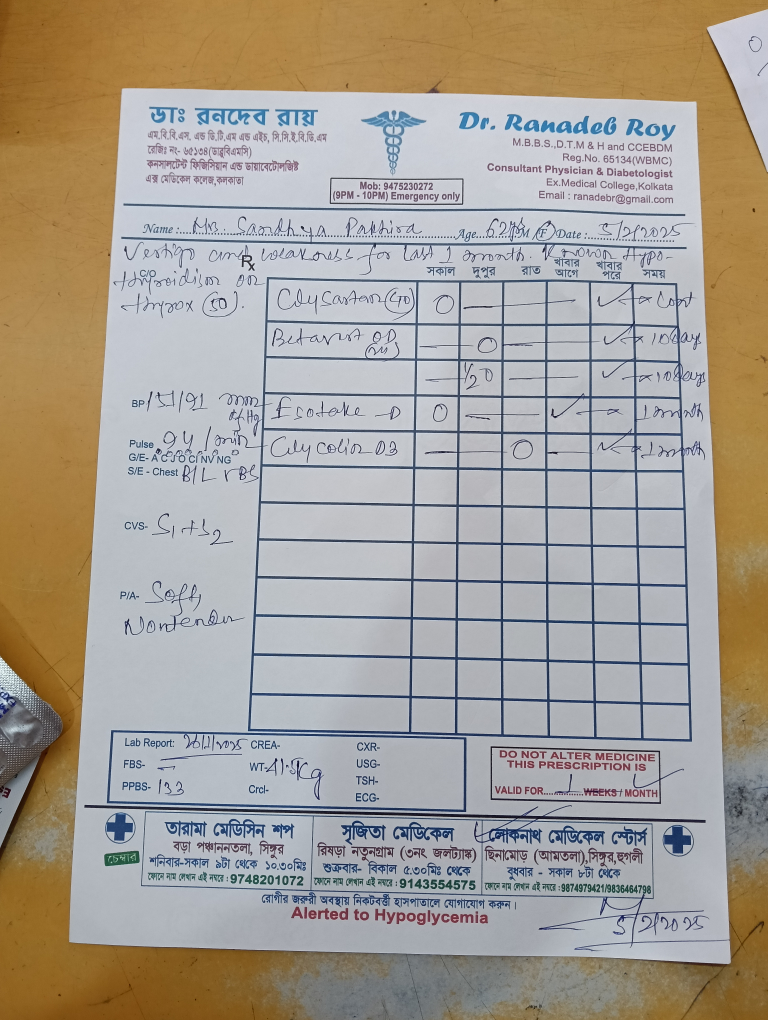 ডাঃ রনদেব রায়
এম.বি.বি.এস, এন্ড ডি.টি.এম এন্ড এইচ, সি.সি.ই.বি.ডি.এম
রেজিঃ নং- ৬৫১৩৪(ডাব্লুবিএমসি)
কনসালটেন্ট ফিজিসিয়ান এন্ড ডায়াবেটোলজিষ্ট
এক্স মেডিকেল কলেজ,কলকাতা
Mob: 9475230272
(9PM - 10PM) Emergency only
Dr. Ranadeb Roy
M.B.B.S.,D.T.M & H and CCEBDM
Reg.No. 65134(WBMC)
Consultant Physician & Diabetologist
Ex.Medical College,Kolkata
Email : ranadebr@gmail.com
Name :. Sandhya Pakhira Age. 62 M/F Date : 5/2/2025
Vertigo and weakness for last 1 month. Known Hypo-
thyroidism on
thyrox (50).
C/O
Rx
সকাল দুপুর রাত খাবার আগে খাবার পরে সময়
(40) O — — — ✓ x Cont
OD — O — — ✓ x 10 days
— 1/2 O — — ✓ x 10 days
Esotake - D O — — ✓ — x 1 month
D3 — — O — ✓ x 1 month
BP- 151/91 mm of Hg
Pulse 94/min
G/E- A C J O C N G
S/E - Chest B/L VBS
CVS- S1+S2
P/A- Soft,
Nontender
Lab Report: CREA- CXR-
FBS- — WT- Kg USG-
PPBS- 133 Crcl- TSH-
ECG-
DO NOT ALTER MEDICINE
THIS PRESCRIPTION IS
VALID FOR 1 WEEKS / MONTH
চেম্বার
তারামা মেডিসিন শপ
বড়া পঞ্চাননতলা, সিঙ্গুর
শনিবার-সকাল ৯টা থেকে ১০.৩০মিঃ
ফোনে নাম লেখান এই নম্বরে : 9748201072
সুজিতা মেডিকেল
রিষড়া নতুনগ্রাম (৩নং জলট্যাঙ্ক)
শুক্রবার- বিকাল ৫.৩০মিঃ থেকে
ফোনে নাম লেখান এই নম্বরে : 9143554575
লোকনাথ মেডিকেল স্টোর্স
ছিনামোড় (আমতলা),সিঙ্গুর,হুগলী
বুধবার - সকাল ৮টা থেকে
ফোনে নাম লেখান এই নম্বরে : 9874979421/9836464798
রোগীর জরুরী অবস্থায় নিকটবর্তী হাসপাতালে যোগাযোগ করুন।
Alerted to Hypoglycemia
5/2/2025